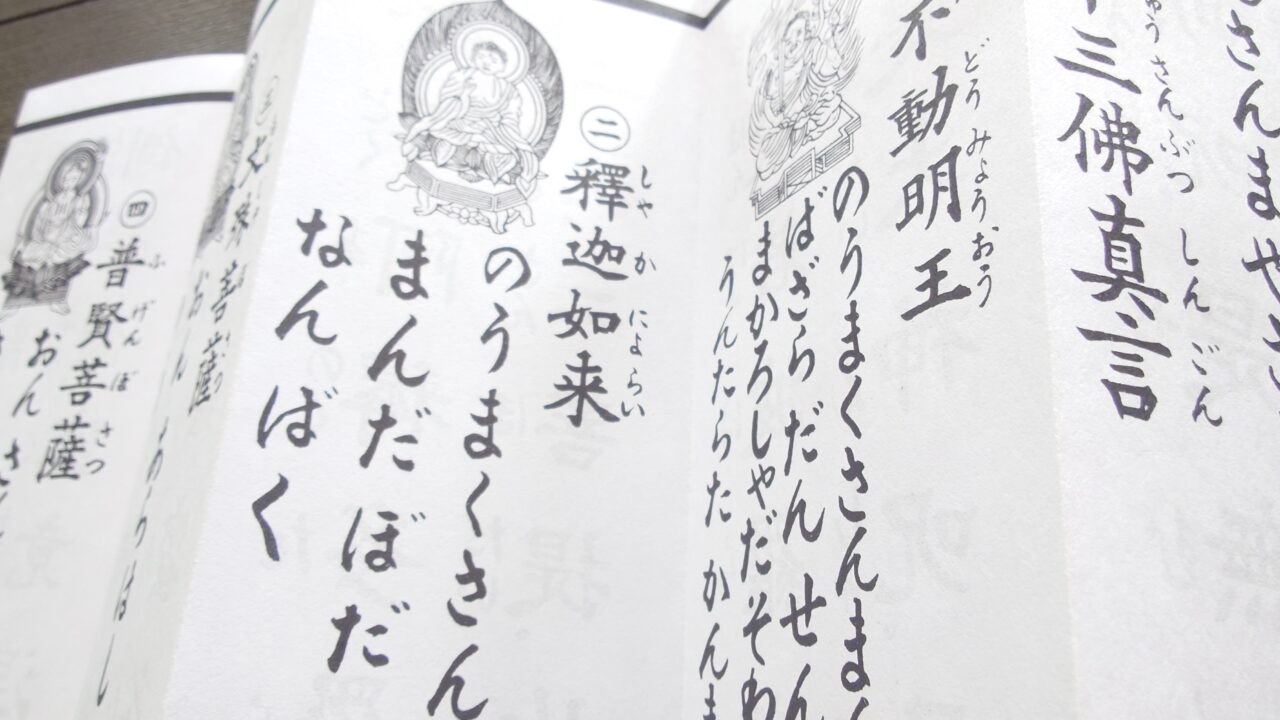 さんまやさ
十三佛真言
ゅうさんぶつ しんごん
不動明王
どうみょうおう
のうまくさんまく
ばざらだんせん
まかろしゃだそわ
うんたらた かんま
㊁
釋迦如来
しゃかにょらい
のうまくさん
まんだぼだ
なんばく
菩薩
おん
㊃
普賢菩薩
ふげんぼさつ
おんさ